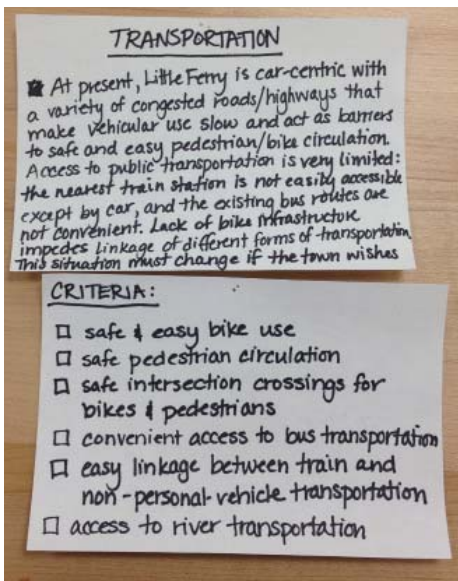 TRANSPORTATION
At present, Little Ferry is car-centric with
a variety of congested roads/highways that
make vehicular use slow and act as barriers
to safe and easy pedestrian/bike circulation.
Access to public transportation is very limited:
the nearest train station is not easily accessible
except by car, and the existing bus routes are
not convenient. Lack of bike infrastructure
impedes linkage of different forms of transportation.
This situation must change if the town wishes
CRITERIA:
☐ safe & easy bike use
☐ safe pedestrian circulation
☐ safe intersection crossings for
bikes & pedestrians
☐ convenient access to bus transportation
☐ easy linkage between train and
non-personal-vehicle transportation
☐ access to river transportation